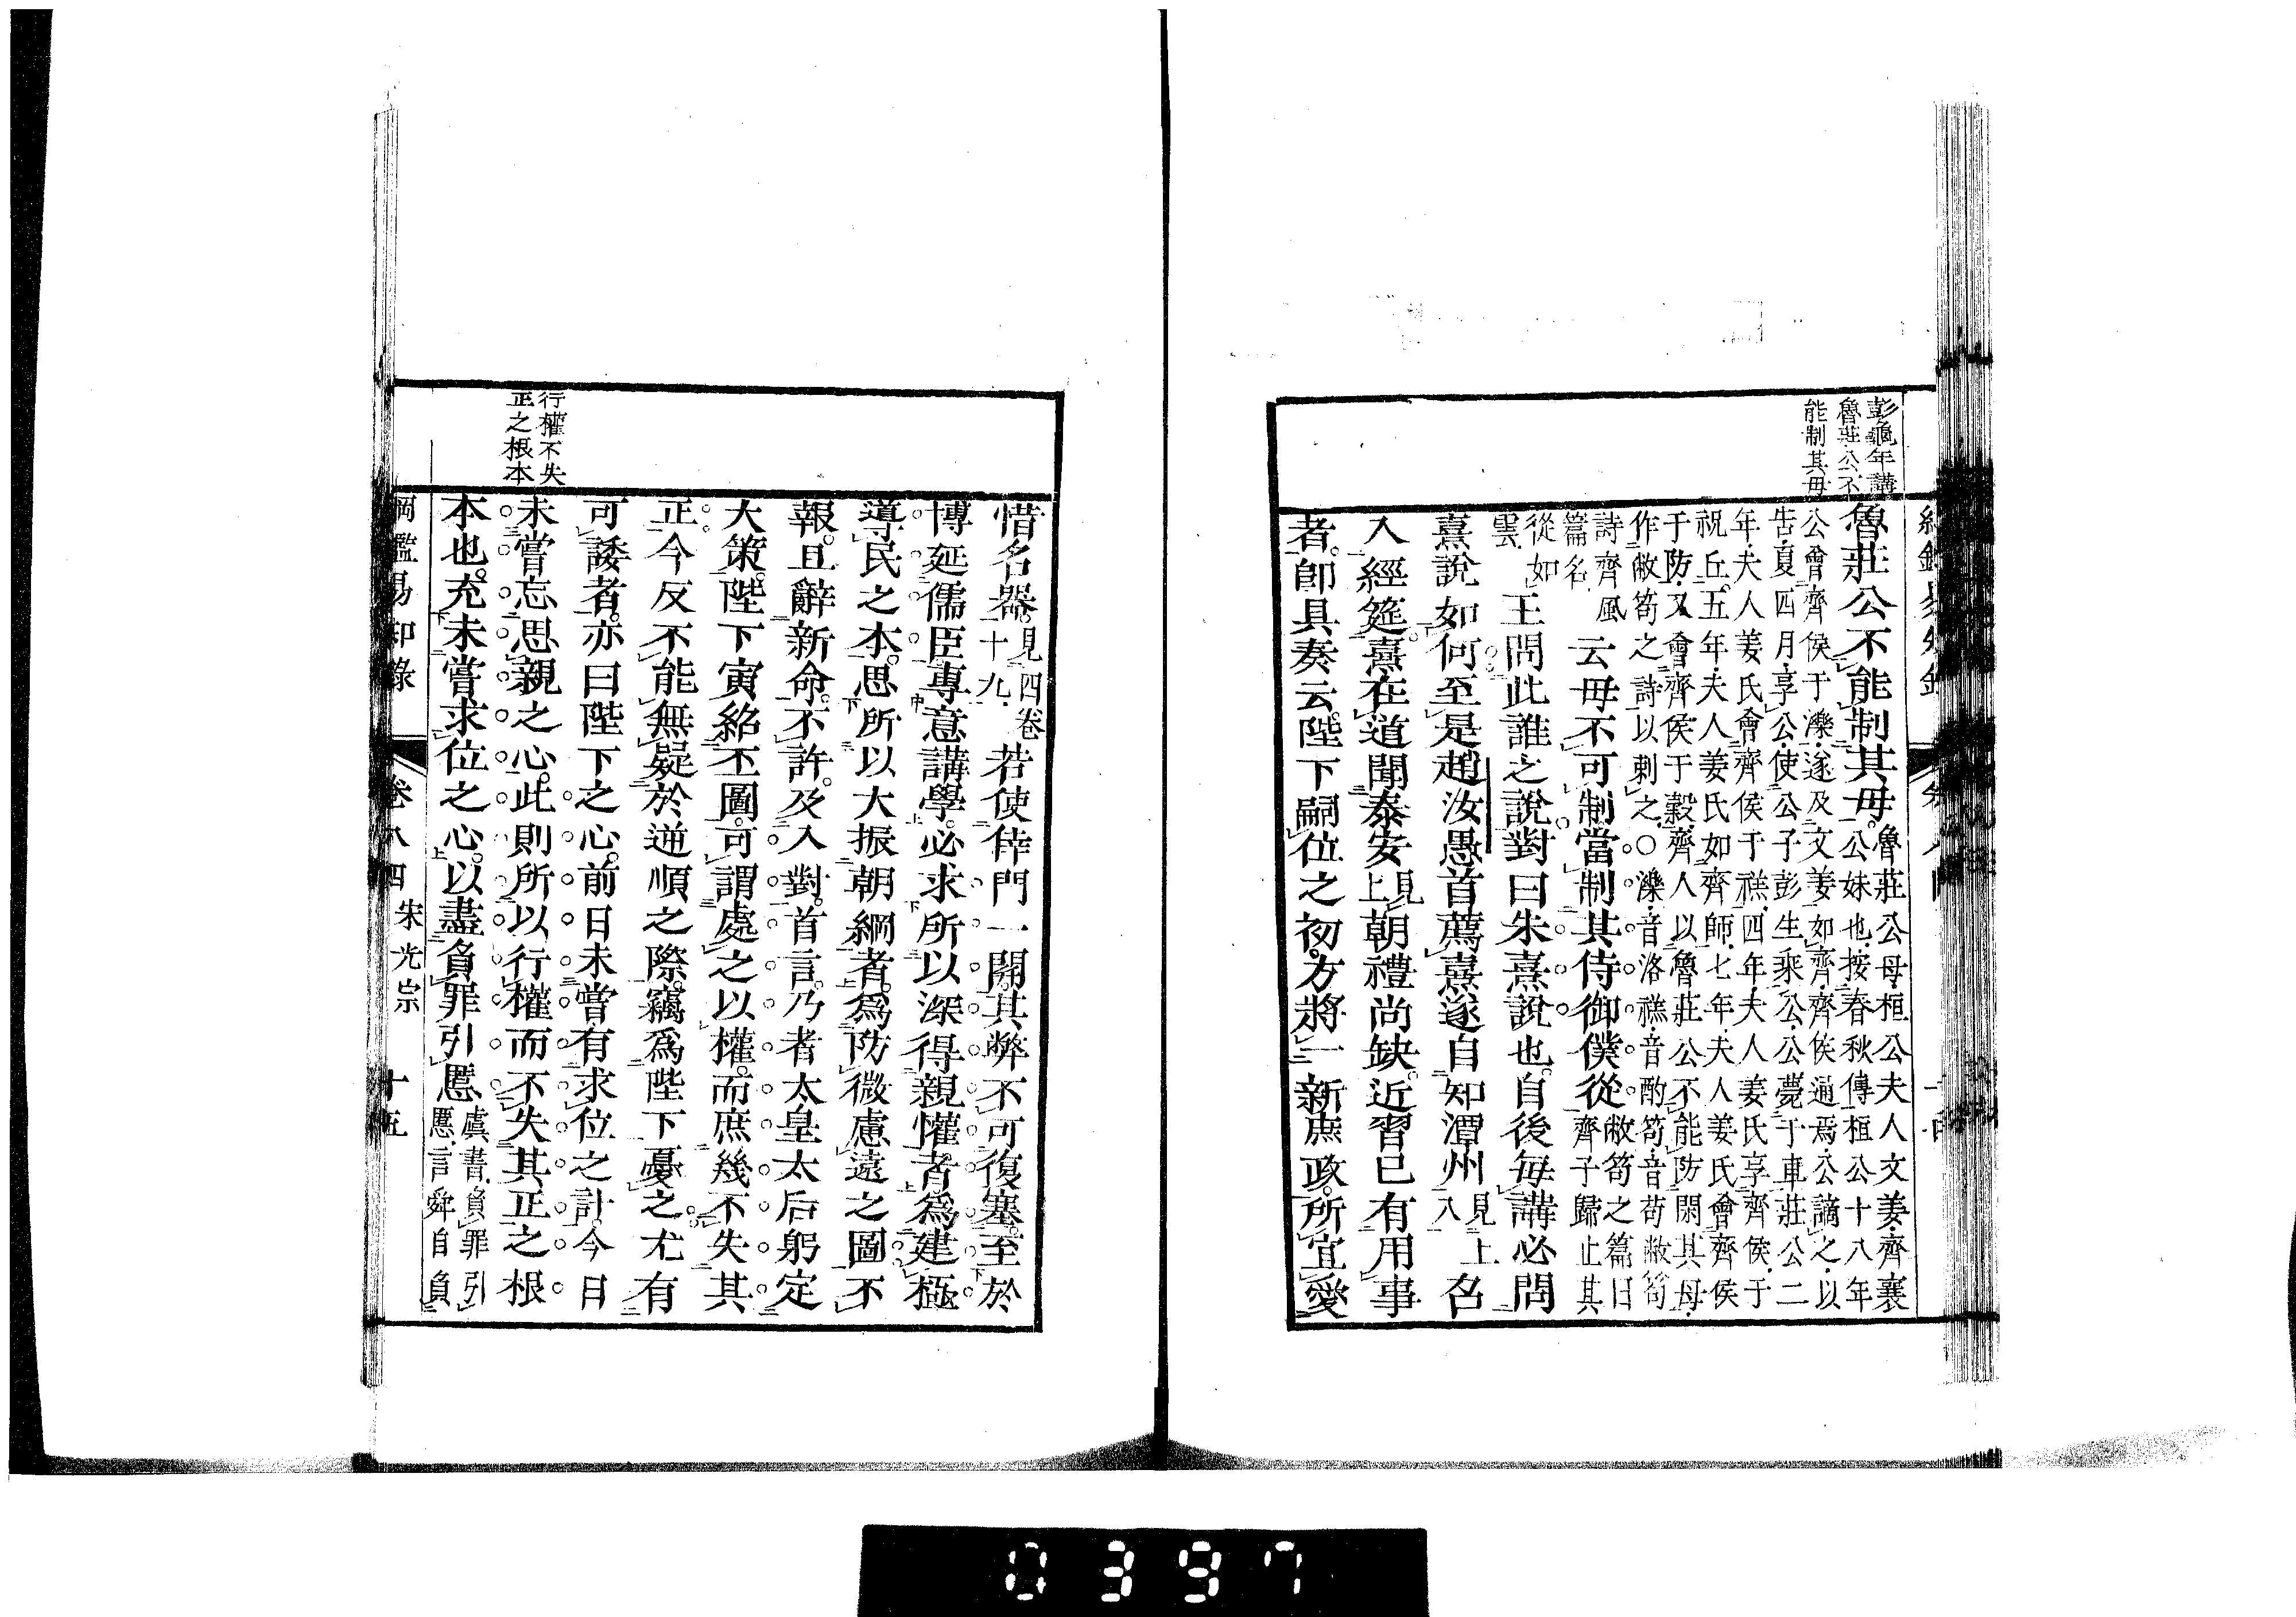 彭龜年講
魯莊公不
能制其母
魯莊公不能制其母。魯莊公母桓公夫人文姜齊襄
公妹也按春秋傳桓公十八年
公會齊侯于濼遂及文姜如齊齊侯通焉公謫之以
告夏四月享公使公子彭生乘公公薨于車莊公二
年夫人姜氏會齊侯于禚四年夫人姜氏享齊侯于
祝丘五年夫人姜氏如齊師七年夫人姜氏會齊侯
于防又會齊侯于穀齊人以魯莊公不能防閑其母
作敝笱之詩以刺之○濼音洛禚音酌笱音苟敝笱
詩齊風
篇名
云母不可制當制其侍御僕從敝笱之篇曰
齊子歸止其
從如
雲
王問此誰之說對曰朱熹說也自後每講必問
熹說如何至是趙汝愚首薦熹遂自知潭州見上
八
召
入經筵熹在道聞泰安見
上
朝禮尚缺近習已有用事
者即具奏云陛下嗣位之初方將一新庶政所宜愛
行權不失
正之根本
惜名器見四卷
十九
若使倖門一開其弊不可復塞至於
博延儒臣專意講學必求所以深得親懽者爲建極
導民之本思所以大振朝綱者爲防微慮遠之圖不
報且辭新命不許及入對首言乃者太皇太后躬定
大策陛下寅紹丕圖可謂處之以權而庶幾不失其
正今反不能無疑於逆順之際竊爲陛下憂之尤有
可諉者亦曰陛下之心前日未嘗有求位之計今日
未嘗忘思親之心此則所以行權而不失其正之根
本也充未嘗求位之心以盡負罪引慝虞書負罪引
慝言舜自負
綱鑑易知錄 卷八四 宋光宗 十五
0397